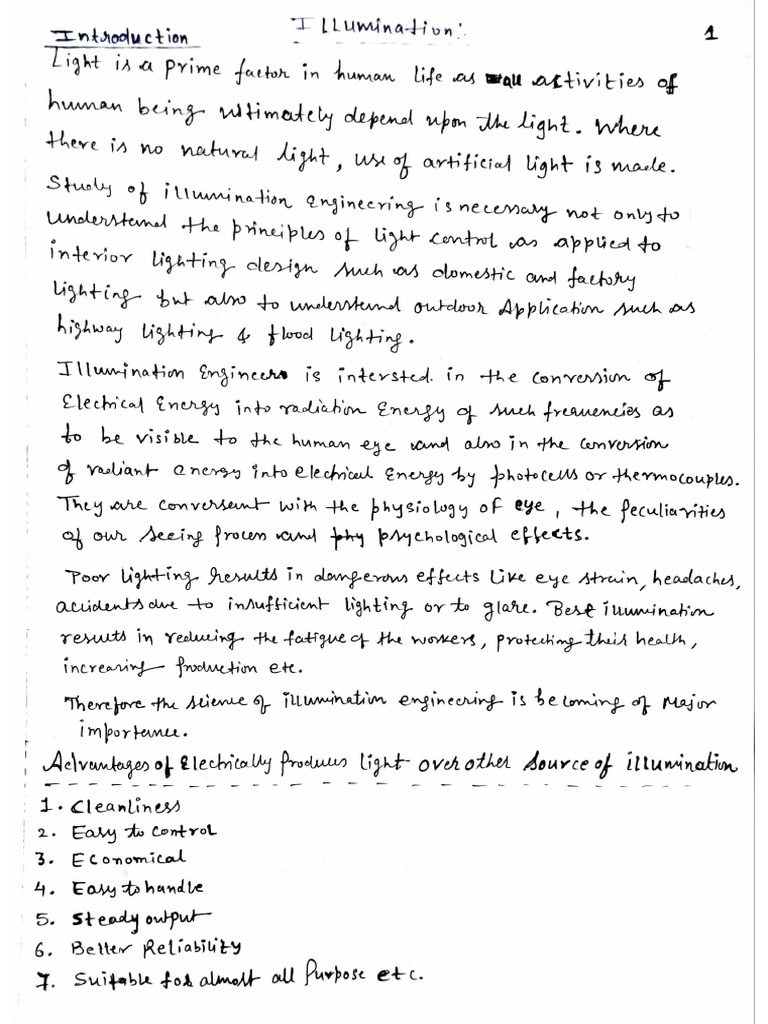 Illumination:
1
Introduction
Light is a prime factor in human life as all activities of
human being ultimately depend upon the light. Where
there is no natural light, use of artificial light is made.
Study of illumination engineering is necessary not only to
understand the principles of light control as applied to
interior lighting design such as domestic and factory
lighting but also to understand outdoor Application such as
highway lighting & flood lighting.
Illumination Engineer is intersted in the conversion of
Electrical Energy into radiation Energy of such frequencies as
to be visible to the human eye and also in the conversion
of radiant energy into electrical Energy by photocells or thermocouples.
They are conversant with the physiology of eye, the peculiarities
of our seeing process and phy psychological effects.
Poor lighting results in dangerous effects like eye strain, headaches,
accidents due to insufficient lighting or to glare. Best illumination
results in reducing the fatigue of the workers, protecting their health,
increasing production etc.
Therefore the science of illumination engineering is becoming of Major
importance.
Advantages of Electrically Produces Light over other Source of illumination
1. Cleanliness
2. Easy to control
3. Economical
4. Easy to handle
5. Steady output
6. Better Reliability
7. Suitable for almost all Purpose etc.